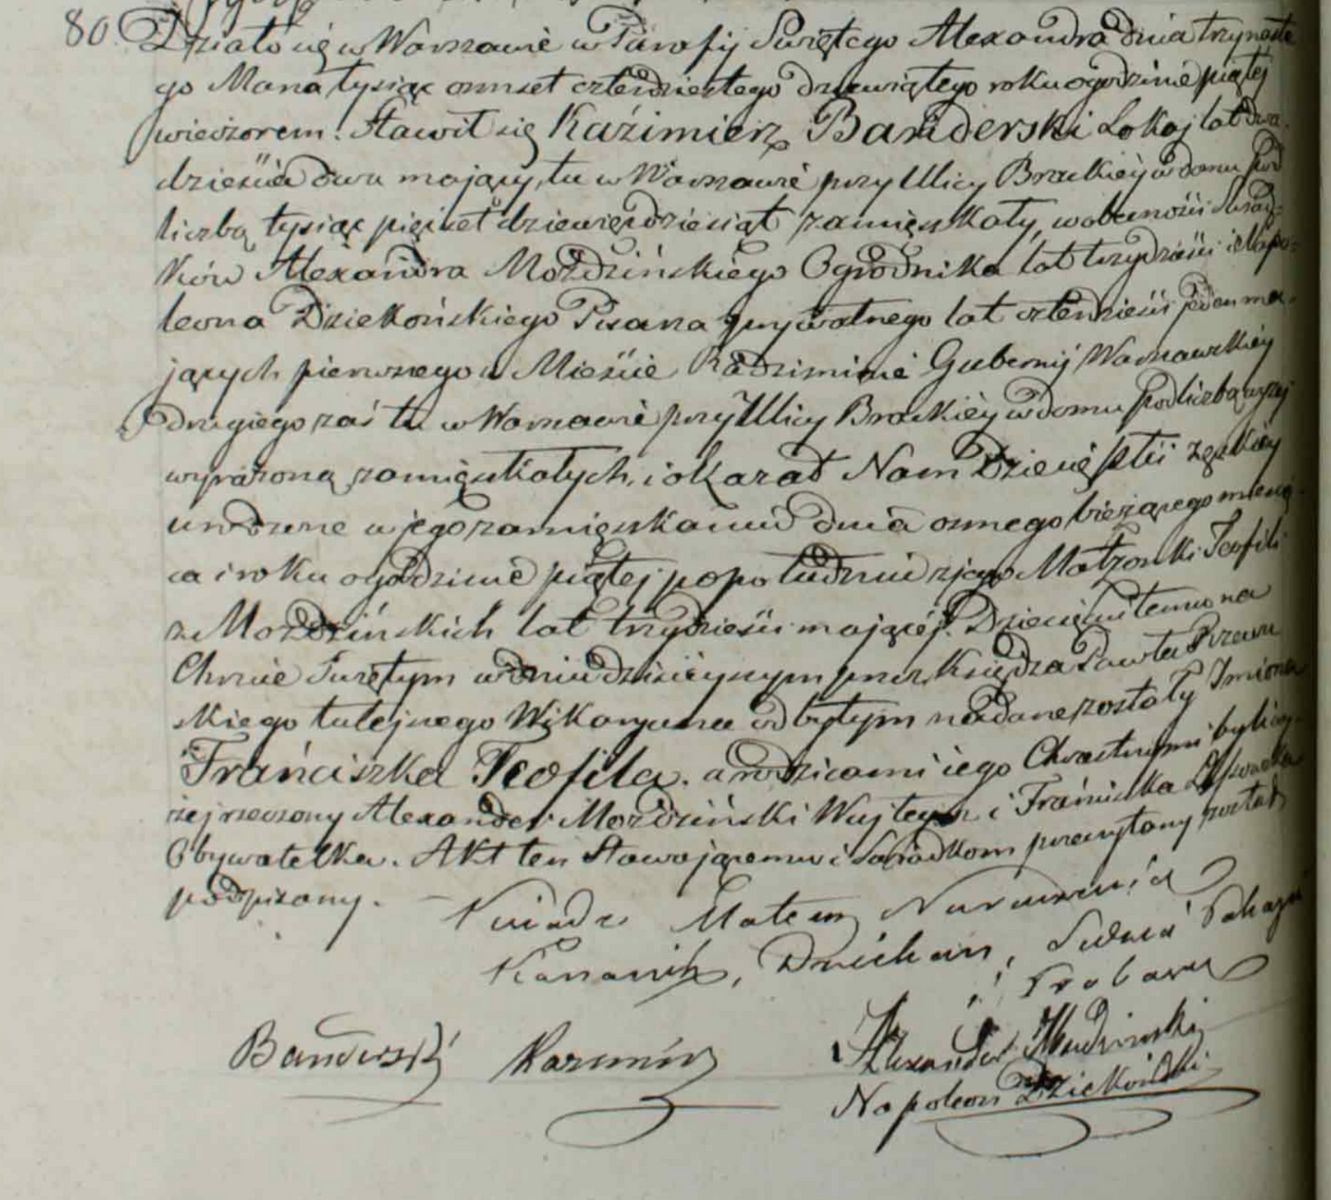 80. Działo się w Warszawie w Parafij Świętego Alexandra dnia trzynaste
go Marca tysiąc osmset czterdziestego dziewiątego roku o godzinie piątej
wieczorem. Stawił się Kaźimierz Banderski Lokaj lat dwa
dzieścia dwa mający, tu w Warszawie przy Ulicy Brackiéy w domu pod
liczbą tysiąc pięćset dziewięćdziesiąt zamięszkały, w obecności Świad-
ków Alexandra Moździńskiego Ogrodnika lat trzydzieści i Napo-
leona Dziekońskiego Pisarza prywatnego lat czterdzieści jeden ma-
jących pierwszego w Mieście Radziminie Gubernij Warszawskiéy
drugiego zaś tu w Warszawie przy Ulicy Brackiéy w domu pod liczbą wyżej
wyrażoną zamięszkałych, i okazał Nam Dziecię płci żeńskiéy
urodzone w jego zamięszkaniu dnia osmego bieżącego miesią-
ca i roku o godzinie piątej po południu z jego Małżonki Teofili
z Moździńskich lat trzydzieści mającéj. Dziecięciu temu na
Chrzcie Świętym w dniu dzisiéyszym przez Księdza Pawła Rzewu
skiego tutejszego Wikaryusza odbytym nadane zostały Imiona
Frańciszka Teofila. a rodzicami iego Chrzestnymi byli wy-
żej rzeczony Alexander Moździński Wujteyże i Frańciszka
Obywatelka. Akt ten Stawającemu i Świadkom przeczytany został
podpisany. Xiądz Mateusz
Kanonik, Dziekan,
i Proboszcz
Banderski Kazimirz Alexander Mudzinski
Napoleon Dziekoński